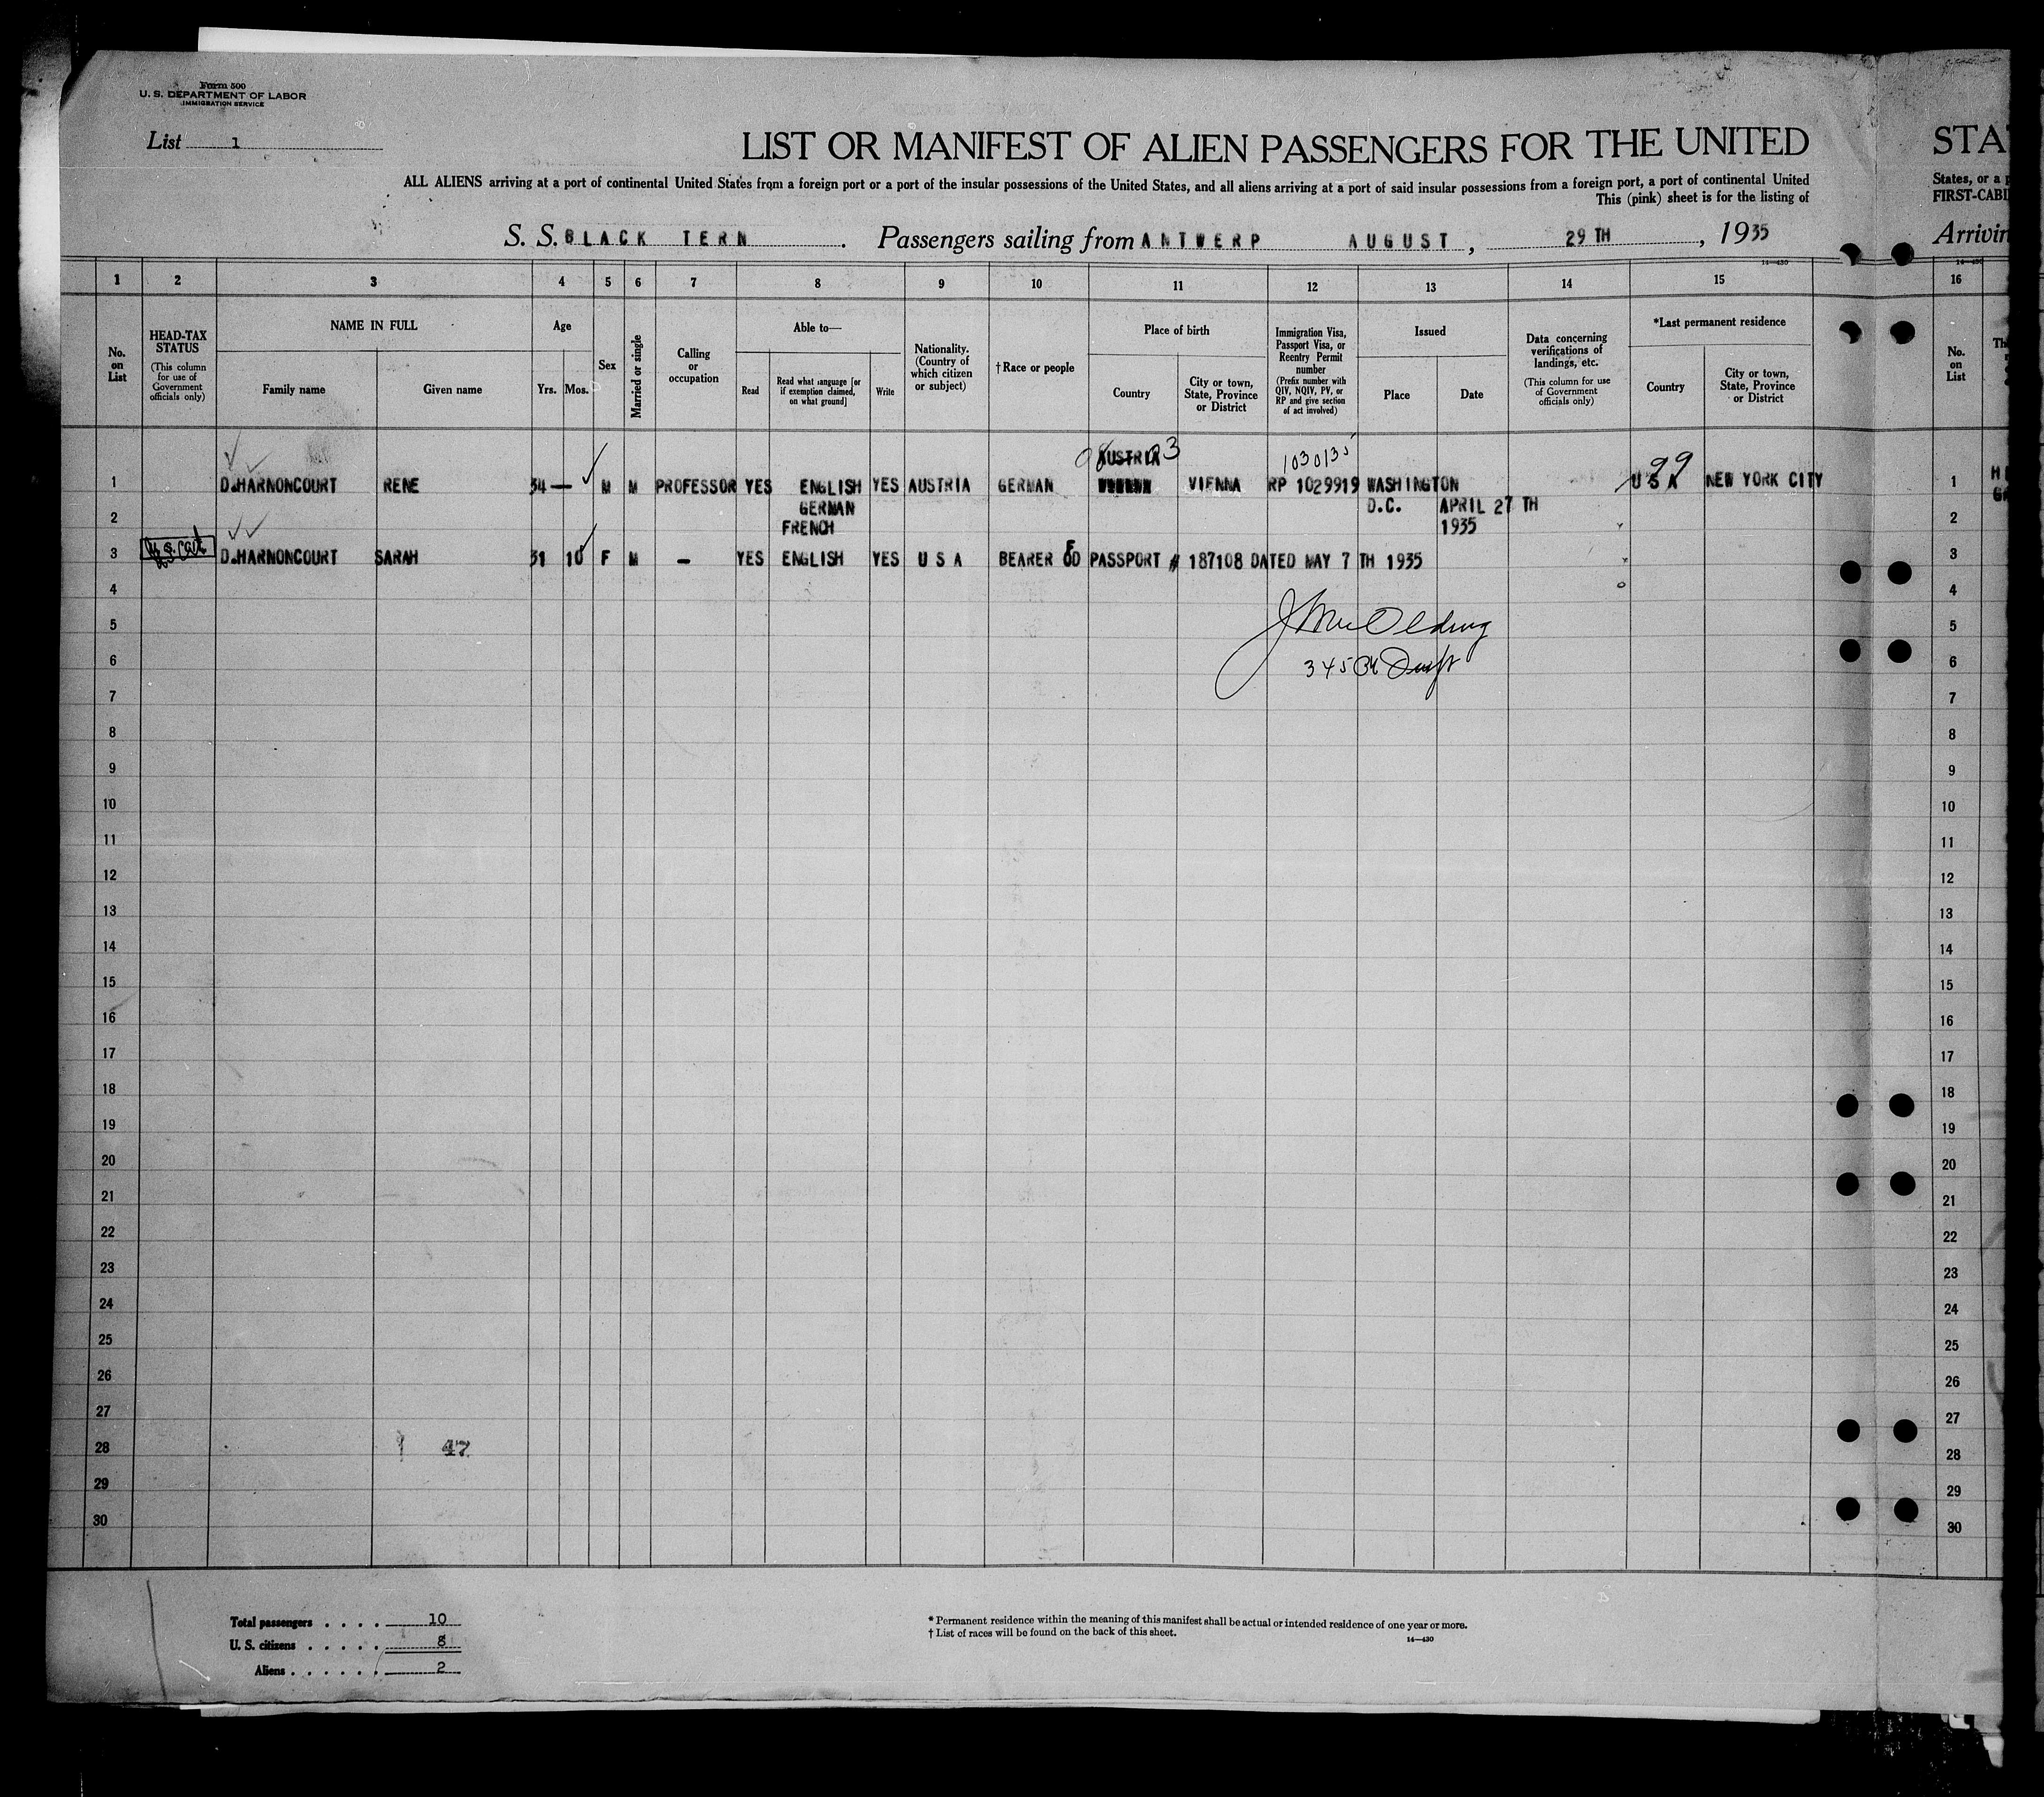 Form 500
U. S. DEPARTMENT OF LABOR
IMMIGRATION SERVICE
List 1
LIST OR MANIFEST OF ALIEN PASSENGERS FOR THE UNITED STA
ALL ALIENS arriving at a port of continental United States from a foreign port or a port of the insular possessions of the United States, and all aliens arriving at a port of said insular possessions from a foreign port, a port of continental United States, or a p
This (pink) sheet is for the listing of FIRST-CABI
S. S. BLACK TERN . Passengers sailing from ANTWERP AUGUST , 29 TH , 1935 Arrivin
14—430 14—430
1 2 3 4 5 6 7 8 9 10 11 12 13 14 15 16
No. on List
HEAD-TAX STATUS
(This column for use of Government officials only)
NAME IN FULL
Family name Given name
Age
Yrs. Mos.
Sex
Married or single
Calling or occupation
Able to—
Read
Read what language [or if exemption claimed, on what ground]
Write
Nationality. (Country of which citizen or subject)
† Race or people
Place of birth
Country
City or town, State, Province or District
Immigration Visa, Passport Visa, or Reentry Permit number
(Prefix number with QIV, NQIV, PV, or RP and give section of act involved)
Issued
Place Date
Data concerning verifications of landings, etc.
(This column for use of Government officials only)
*Last permanent residence
Country
City or town, State, Province or District
No. on List
Th
AUSTRIA 3 1030135 99
1 D.HARNONCOURT RENE 34 — M M PROFESSOR YES ENGLISH YES AUSTRIA GERMAN VIENNA RP 1029919 WASHINGTON USA NEW YORK CITY 1
2 GERMAN D.C. APRIL 27 TH 2
FRENCH 1935
3 U.S. Cit D.HARNONCOURT SARAH 31 10 F M — YES ENGLISH YES U S A BEARER OF PASSPORT # 187108 DATED MAY 7 TH 1935 3
4 4
5 5
6 345 6
7 7
8 8
9 9
10 10
11 11
12 12
13 13
14 14
15 15
16 16
17 17
18 18
19 19
20 20
21 21
22 22
23 23
24 24
25 25
26 26
27 27
28 47 28
29 29
30 30
Total passengers . . . . 10
U. S. citizens . . . . . 8
Aliens . . . . . . 2
* Permanent residence within the meaning of this manifest shall be actual or intended residence of one year or more.
† List of races will be found on the back of this sheet.
14—430